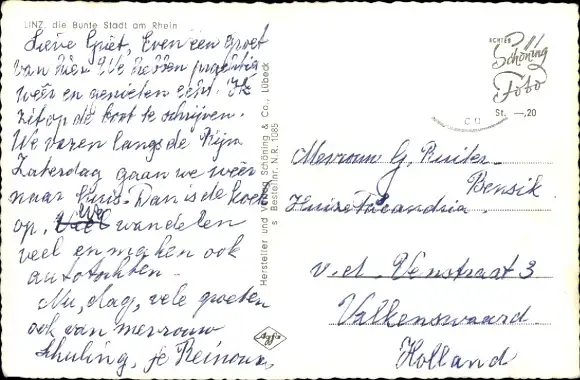 LINZ, die Bunte Stadt am Rhein
Lieve Griet, Even een groet
van hier. We hebben prachtig
weer en genieten echt. Ik
zit op de boot te schrijven.
We varen langs de Rijn
Zaterdag gaan we weer
naar huis. Dan is de koek
op. We wandelen
veel en maken ook
autotochten.
Nu, dag, vele groeten
ook van mevrouw
Schuling, je Reinoux
Hersteller und Verlag Schöning & Co., Lübeck
s Bestellnr. N.R. 1085
Agfa
ECHTES
Schöning
Foto
St. —,20
Mevrouw G. Ruiter-
Bensik
Huize
v.d. Venstraat 3
Valkenswaard.
Holland